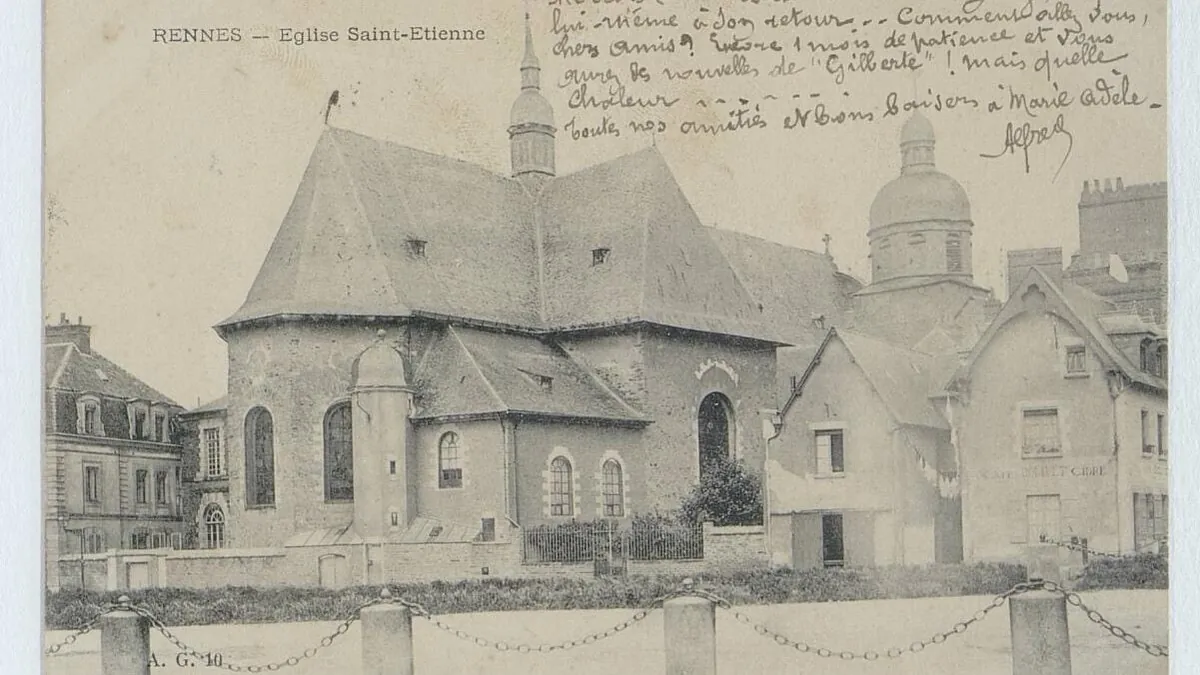 RENNES — Eglise Saint-Etienne
lui-même à son retour -- Comment allez vous,
chers amis? Encore 1 mois de patience et vous
aurez des nouvelles de "Gilberte"! mais quelle
chaleur - - - - - -
toutes nos amitiés et bons baisers à Marie Adèle -
Alfred
CIDRE
A. G. 10